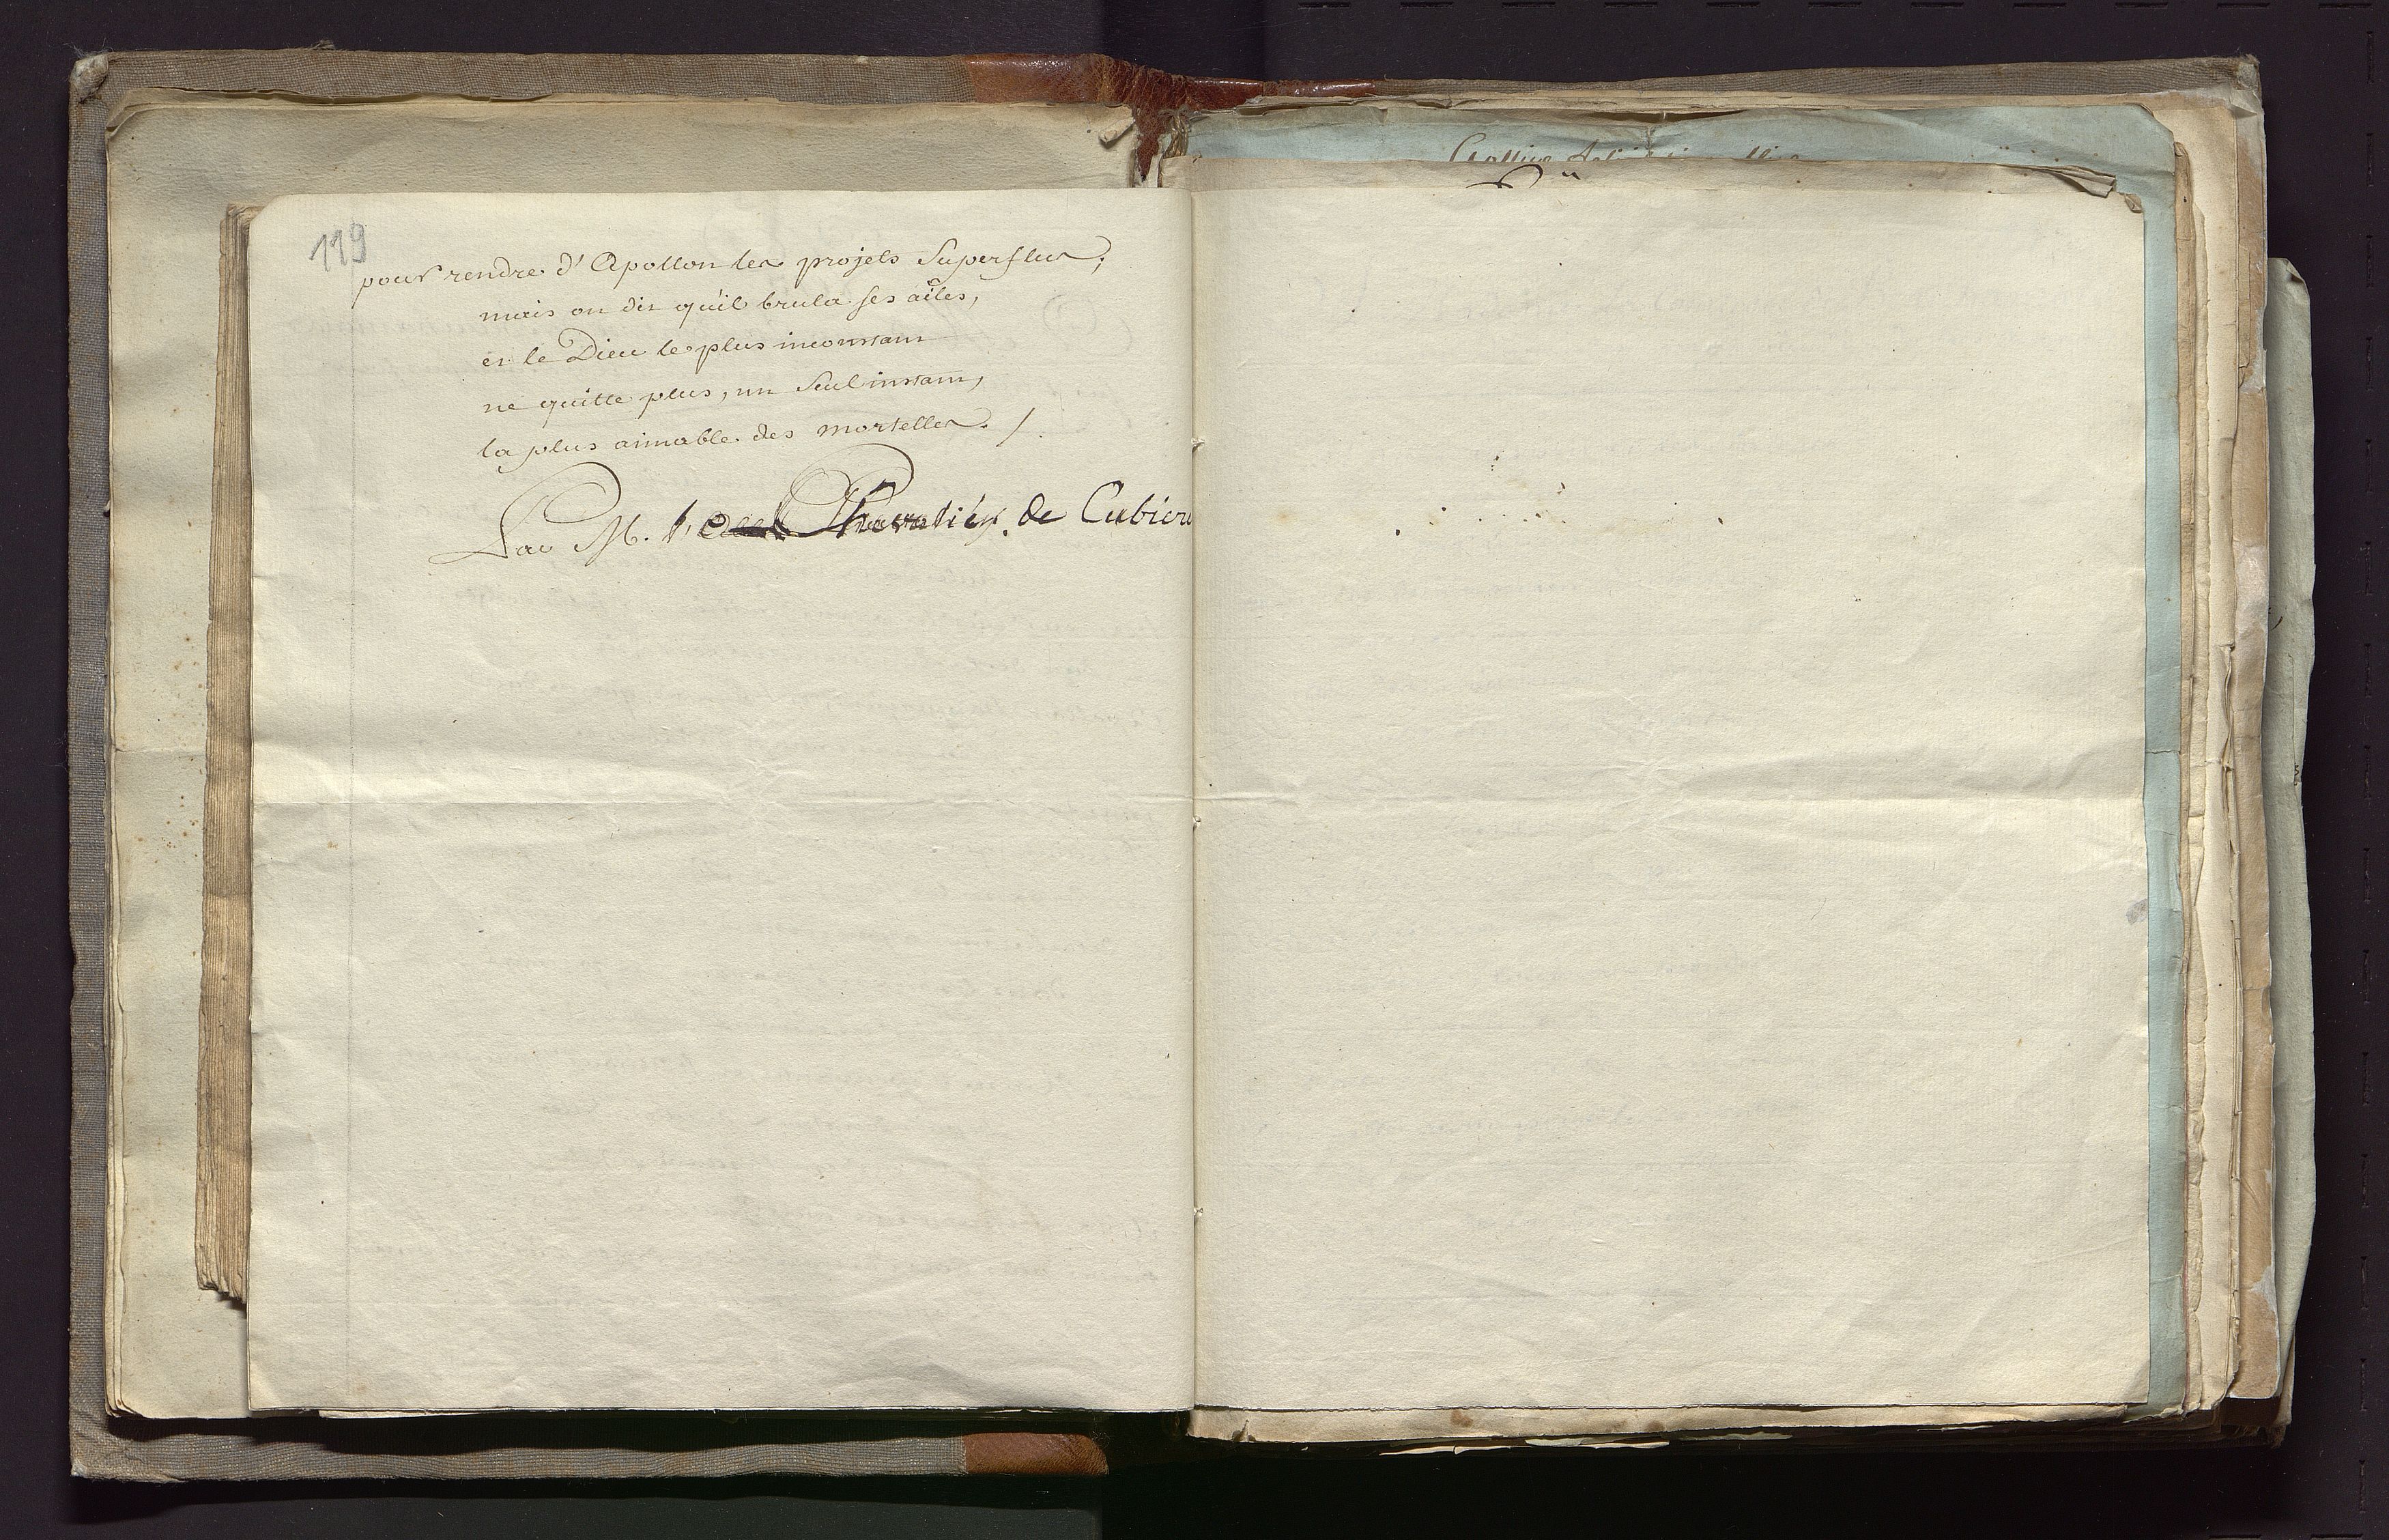 119
pour rendre d'Apollon les projets Superflus;
mais on dit qu'il brula ses aîles,
et le Dieu le plus inconstant
ne quitte plus, un Seul instant,
la plus aimable des mortelles. /.
Par M. le Chevalier de Cubiere